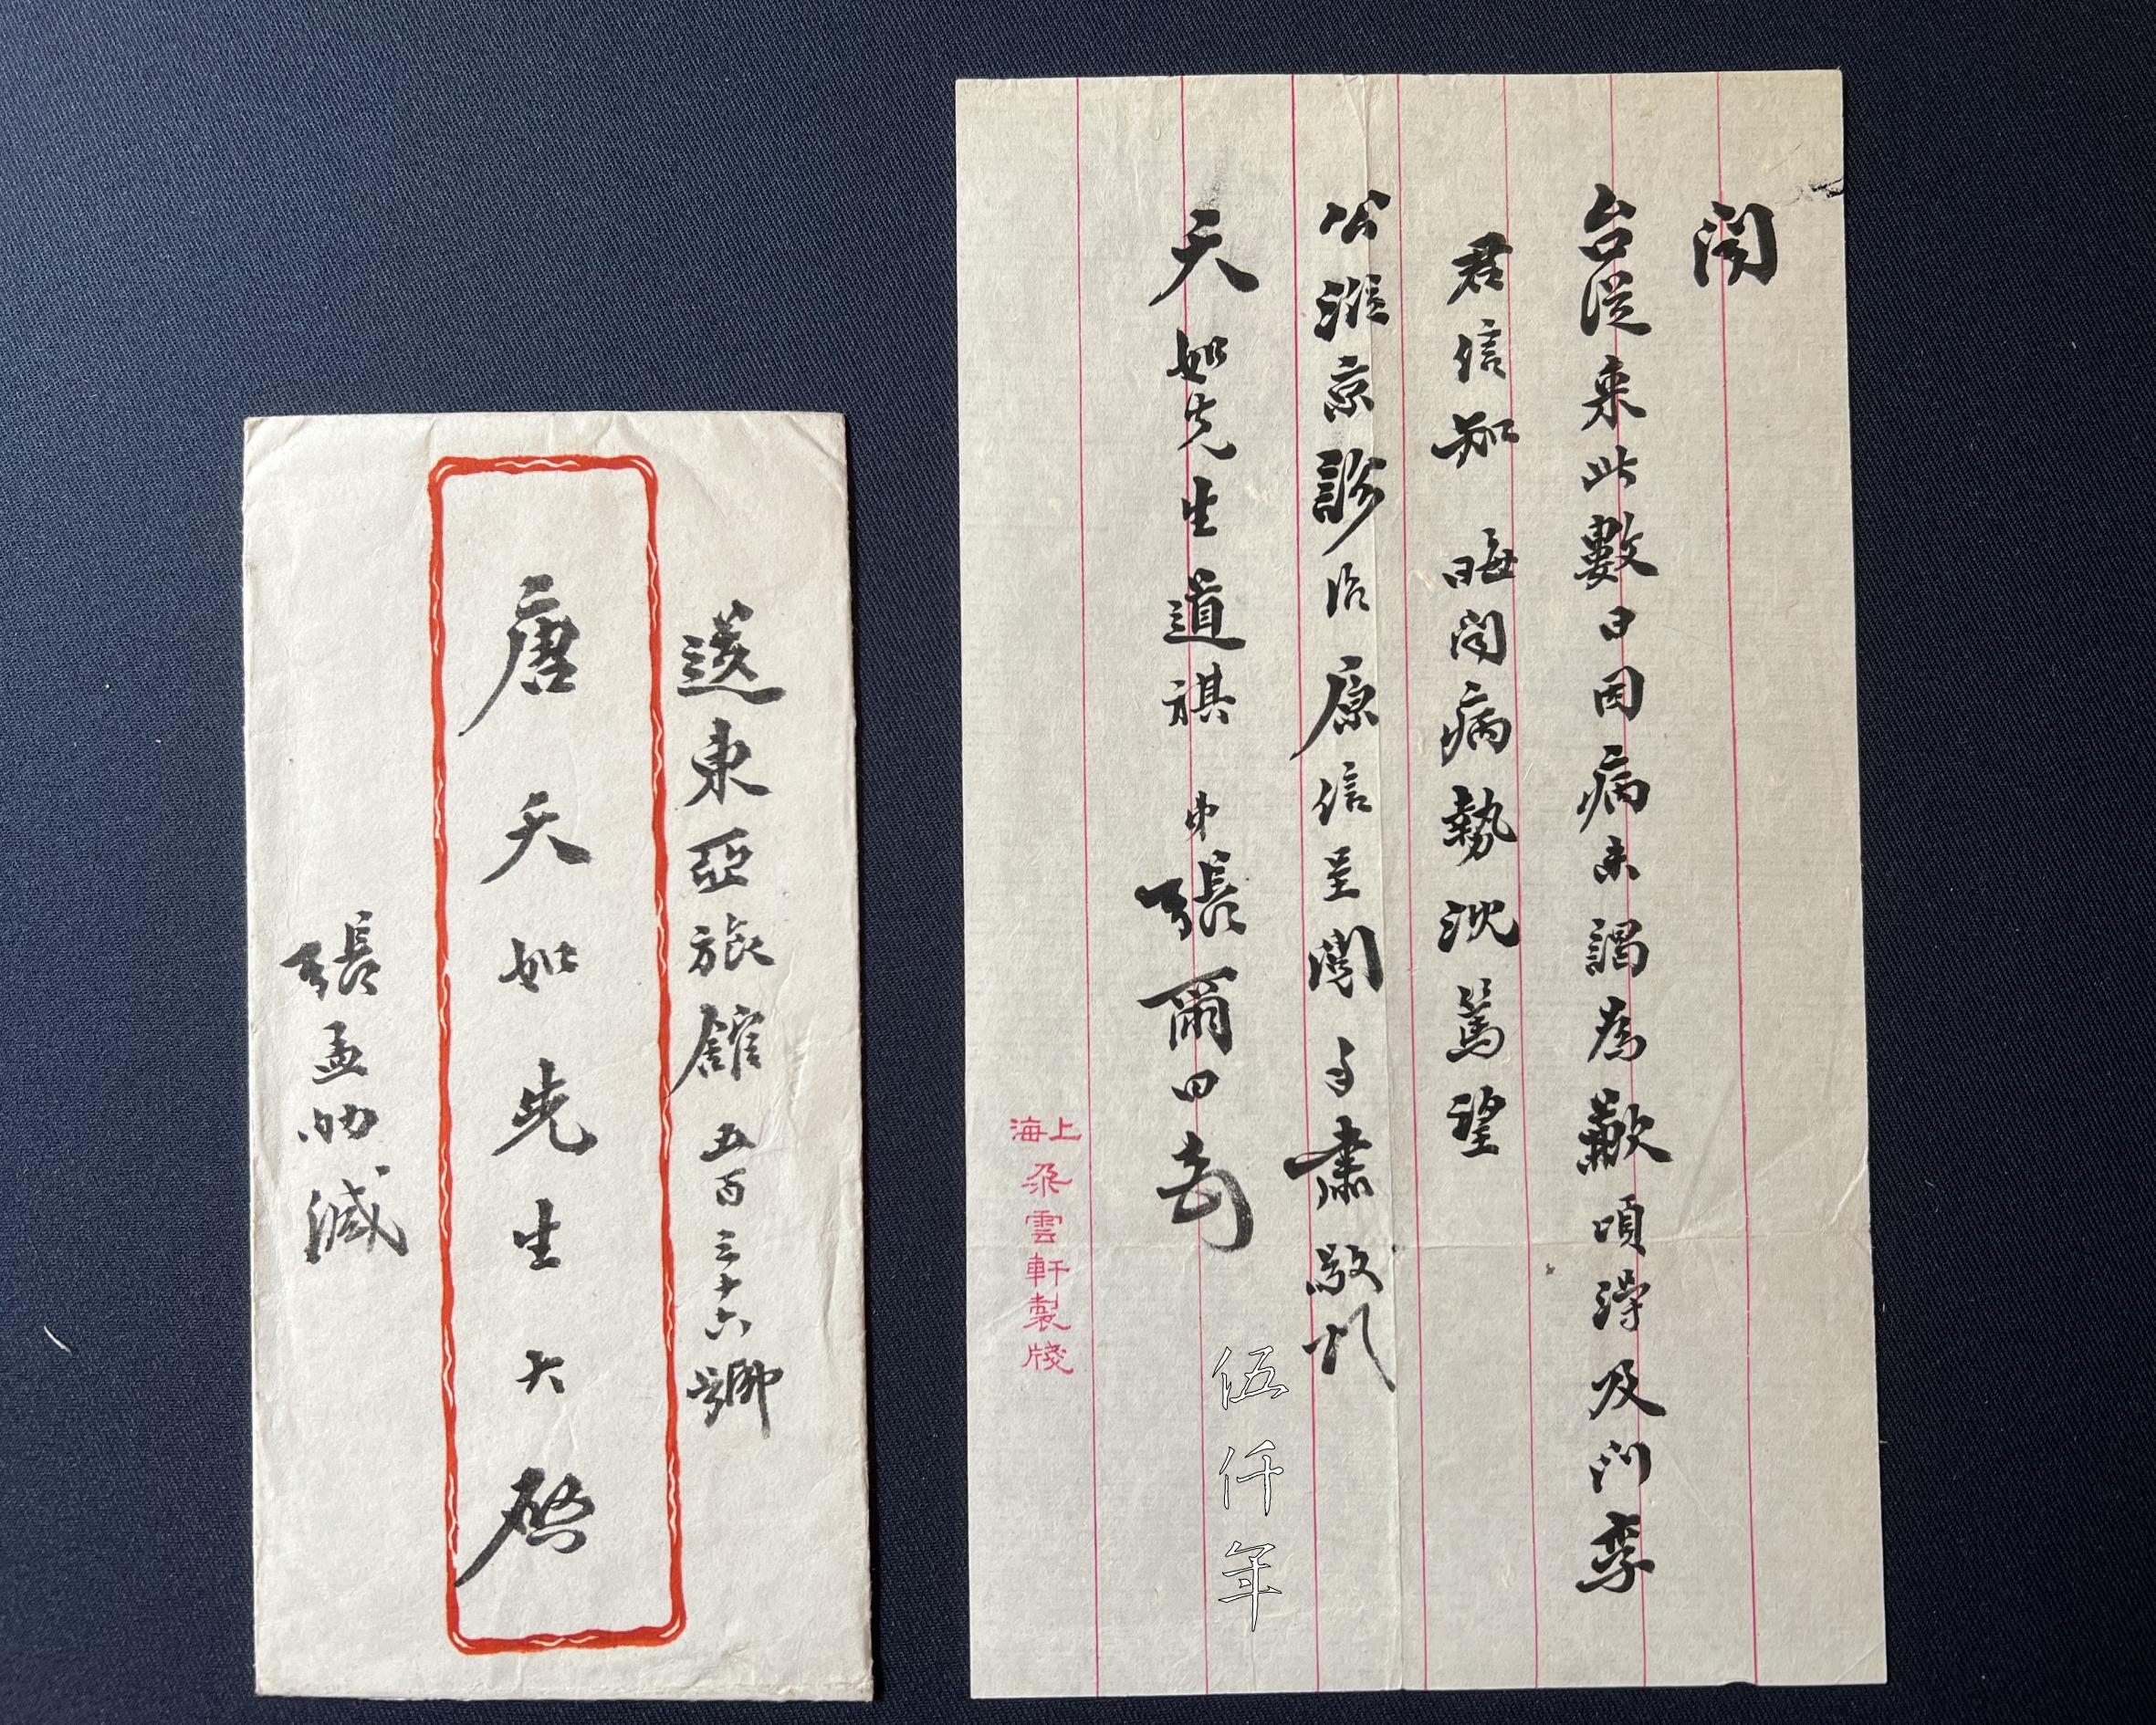 聞
台從來此數日因病未謁為歉頃得及門李
君信知 晦聞病勢沈篤望
公涖京診治原信呈閱手肅敬頌
天如先生道祺 弟張爾田
上海
朵雲軒製牋
伍仟年
送東亞旅館五百三十六號
唐天如先生大啓
張孟劬緘